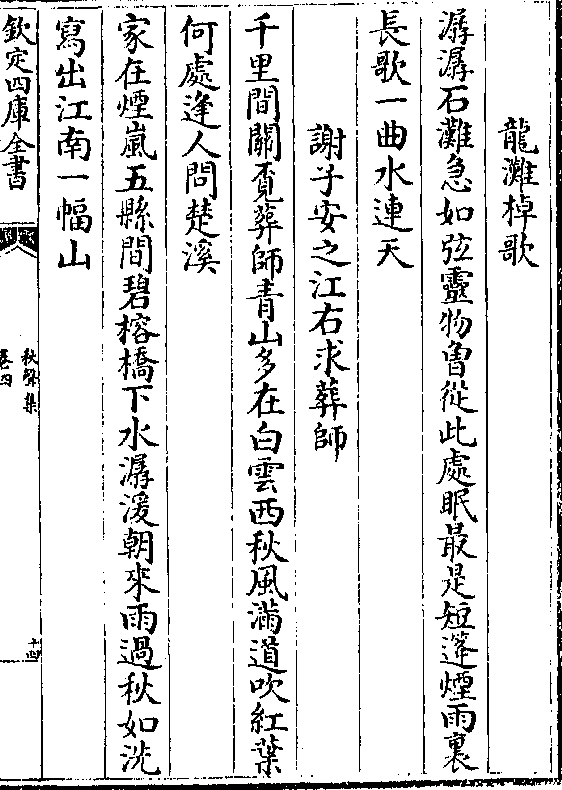 龍灘棹歌
潺潺石灘急如弦靈物曾從此處眠最是短篷煙雨裏
長歌一曲水連天
謝子安之江右求葬師
千里間關覓葬師青山多在白雲西秋風滿道吹紅葉
何處逢人問楚溪
家在煙嵐五縣間碧榕橋下水潺湲朝來雨過秋如洗
寫出江南一幅山
欽定四庫全書
秋聲集
卷四
十四